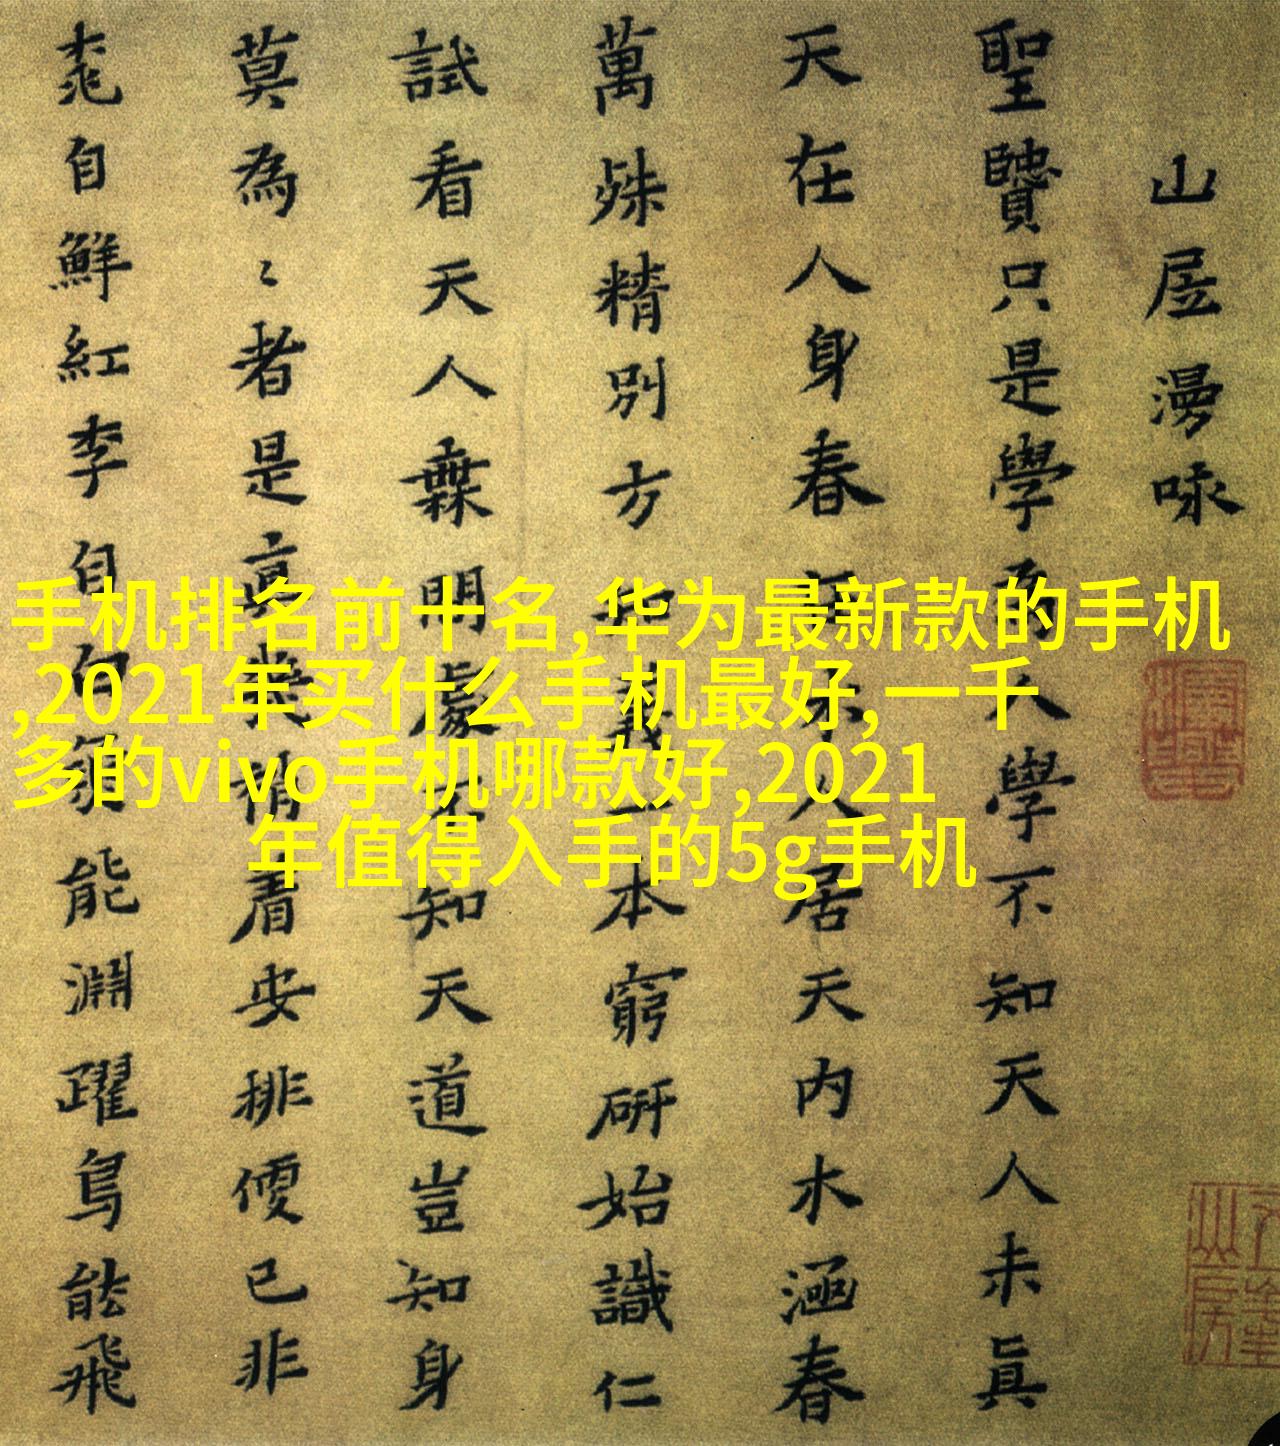 山居漫咏
聖贒只是學人學不知天人未真
天在人身春人居天内木涵春
萬殊精別方義一本窮研始識仁
試看天人明處知天道豈知身
莫為〻者是真着安排便已非
桃自鮮紅李自白能淵躍鳥能飛
手机排名前十名,华为最新款的手机
,2021年买什么手机最好,一千
多的vivo手机哪款好,2021
年值得入手的5g手机